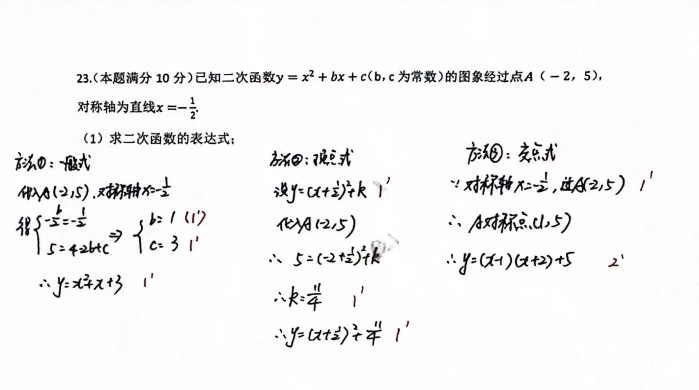 23.(本题满分 10 分)已知二次函数y = x² + bx + c(b, c 为常数)的图象经过点A（－2，5），
对称轴为直线x = −1/2.
（1）求二次函数的表达式；
方法①：一般式
代入A(-2,5), 对称轴x=-1/2
得 { -b/2=-1/2 ⇒ { b=1 (1')
5=4-2b+c c=3 1'
∴ y=x²+x+3 1'
方法②：顶点式
设y=(x+1/2)²+k 1'
代入A(-2,5)
∴ 5=(-2+1/2)²+k
∴k=11/4 1'
∴y=(x+1/2)²+11/4 1'
方法③：交点式
∵对称轴x=-1/2, 过A(-2,5) 1'
∴ A对称点(1,5)
∴y=(x-1)(x+2)+5 2'